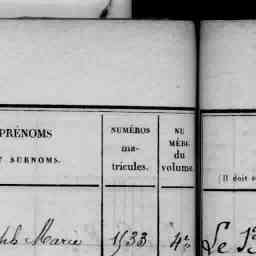 PRÉNOMS
T SURNOMS.
NUMÉROS
ma-
tricules.
NU
MÉRO
du
volume.
(Il doit
ph Marie
1533
4e
Le 1er